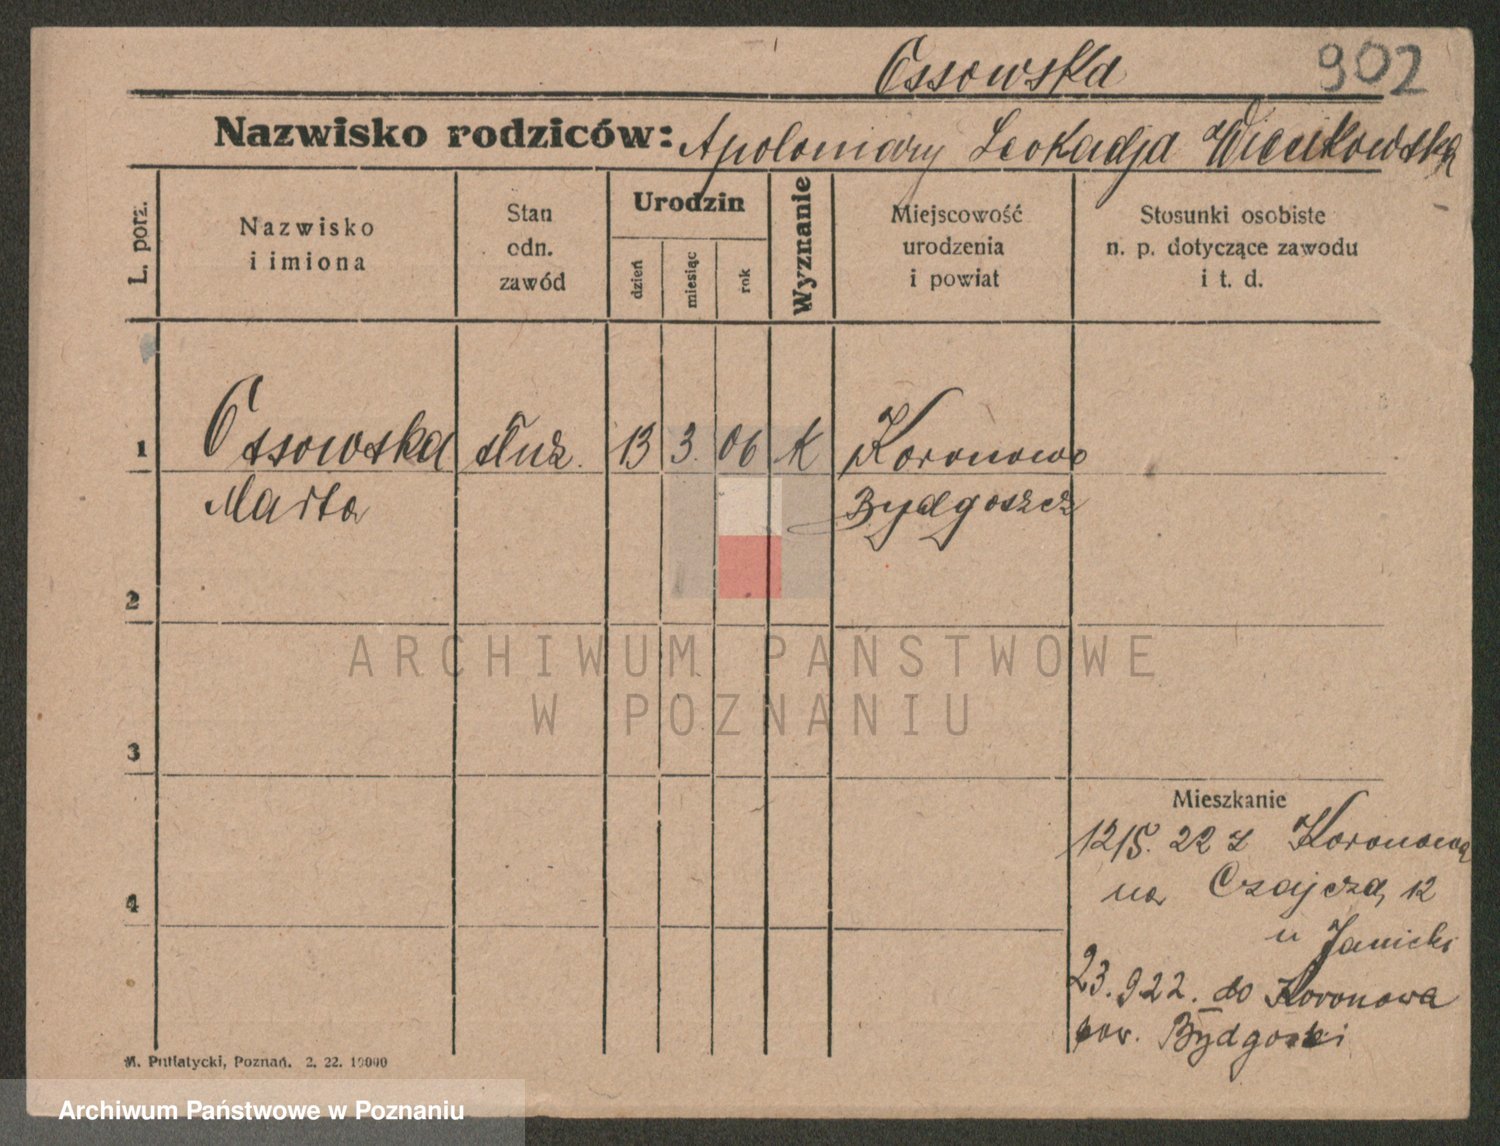 Ossowska 902
Nazwisko rodziców: Apoloniary Leokadja Więckowska
L. porz.
Nazwisko
i imiona
Stan
odn.
zawód
Urodzin
dzień
miesiąc
rok
Wyznanie
Miejscowość
urodzenia
i powiat
Stosunki osobiste
n. p. dotyczące zawodu
i t. d.
1 Ossowska służ. 13 3. 06 K Koronowo
Marta Bydgoszcz
2
ARCHIWUM PAŃSTWOWE
W POZNANIU
3
Mieszkanie
12/5. 22 z Koronowa
na 12
4
u Janicki
23. 9 22. do Koronowa
pow. Bydgoski
M. Putiatycki, Poznań. 2. 22. 10000
Archiwum Państwowe w Poznaniu